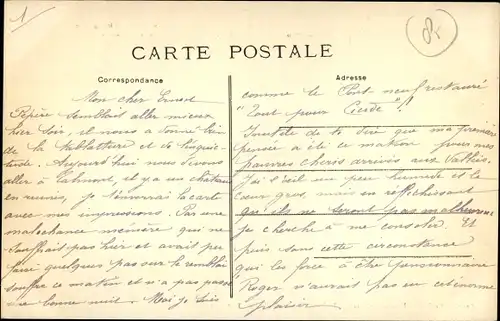 1
CARTE POSTALE
Correspondance
Adresse
Mon cher Ernest
Pépère semblait aller mieux
hier soir, il nous a donné bien
de la tablature et de l'inquié-
tude. Aujourd'hui nous devons
aller à Talmont, il y a un château
en ruines, je t'enverrai la carte
avec mes impressions. Par une
malechance mémère qui ne
souffrait pas hier et avait pu
faire quelques pas sur le remblai
souffre ce matin et n'a pas passé
une bonne nuit. Moi je suis
comme le Pont neuf restauré
"Tout pour
Inutile de te dire que ma première
pensée a été ce matin pour mes
pauvres chéris arrivés aux Vallées.
J'ai l'œil un peu humide et le
cœur gros, mais en réfléchissant
qu'ils ne seront pas malheureux
je cherche à me consoler. Et
puis sans cette circonstance
qui les force à être
Roger n'aurait pas eu cet énorme
plaisir